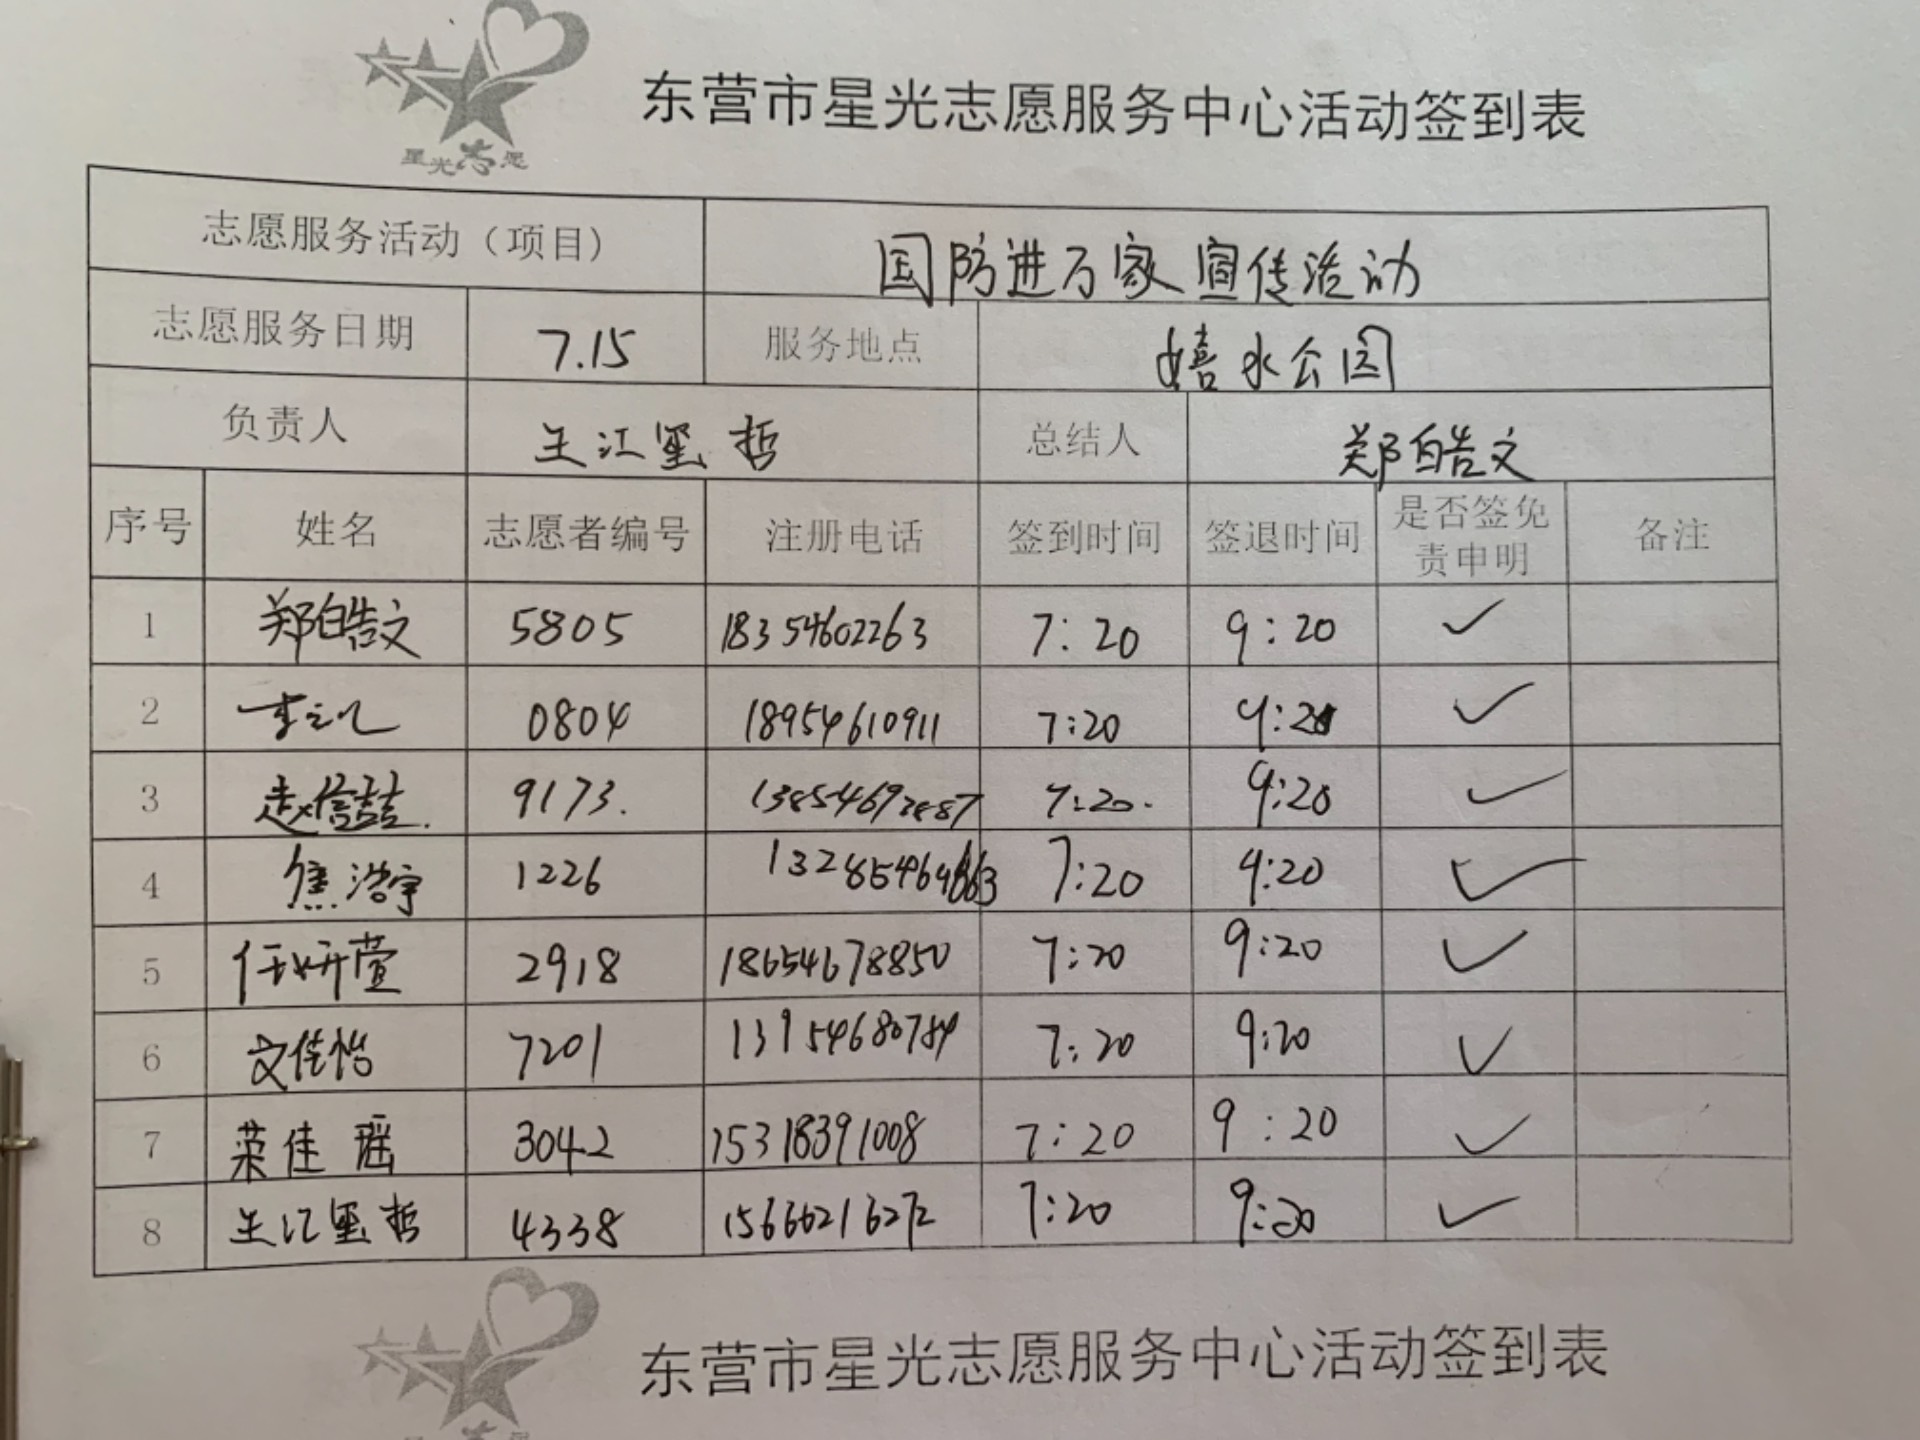 星光志愿
东营市星光志愿服务中心活动签到表
志愿服务活动（项目） 国防进万家宣传活动
志愿服务日期 7.15 服务地点 嬉水公园
负责人 王江玺哲 总结人 郑皓文
序号 姓名 志愿者编号 注册电话 签到时间 签退时间 是否签免责申明 备注
1 郑皓文 5805 18354602263 7:20 9:20 ✓
2 0804 18954610911 7:20 9:20 ✓
3 赵信喆 9173. 7:20. 9:20 ✓
4 焦浩宇 1226 7:20 9:20 ✓
5 任妍萱 2918 18654678850 7:20 9:20 ✓
6 文佳怡 7201 13954680784 7:20 9:20 ✓
7 荣佳瑶 3042 15318391008 7:20 9:20 ✓
8 王江玺哲 4338 15666216272 7:20 9:20 ✓
东营市星光志愿服务中心活动签到表